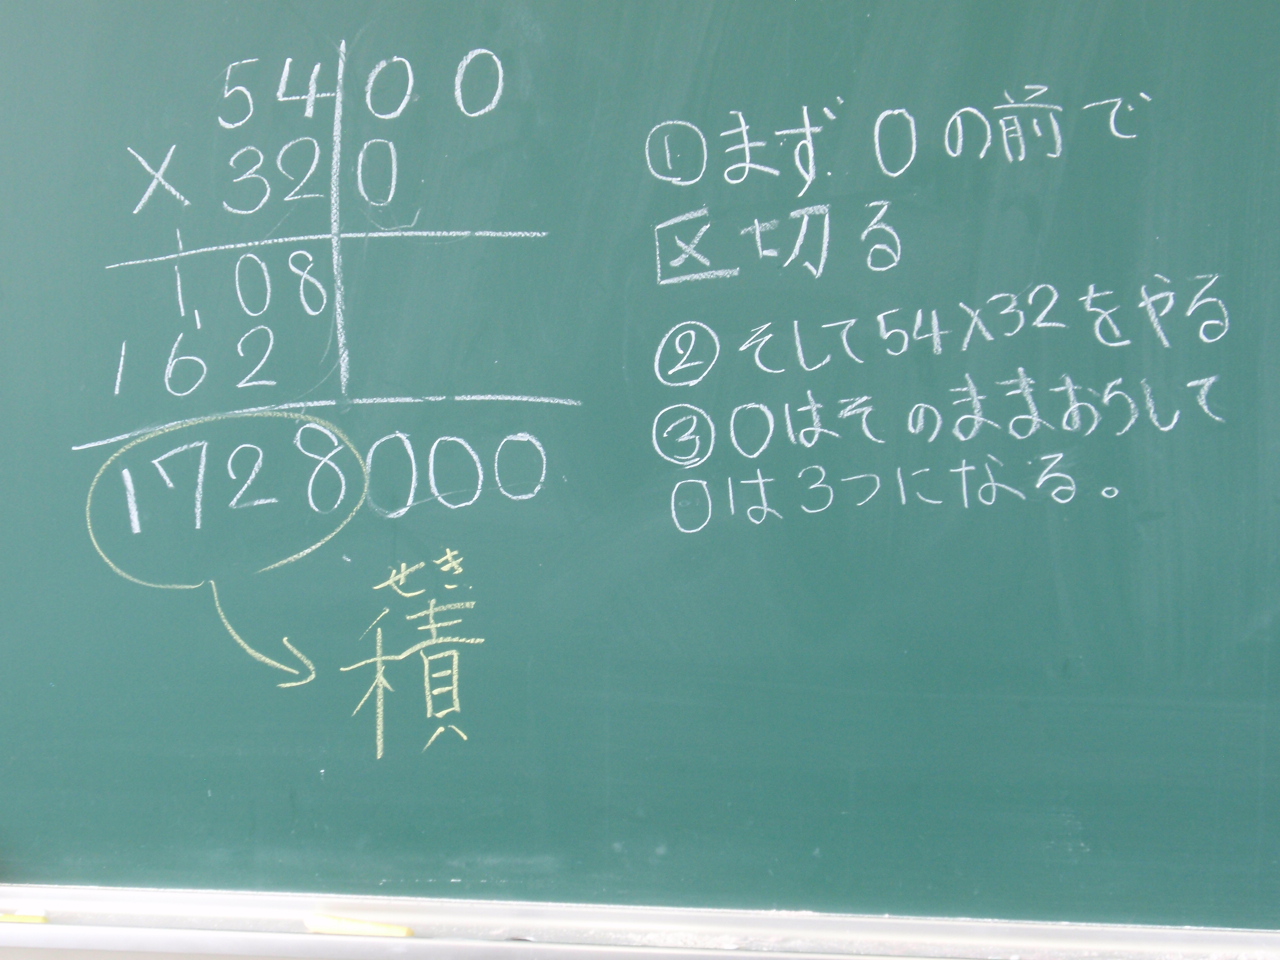 5400
×320
108
162
1728000
せき
積
①まず0の前で
区切る
②そして54×32をやる
③0はそのままおろして
0は3つになる。